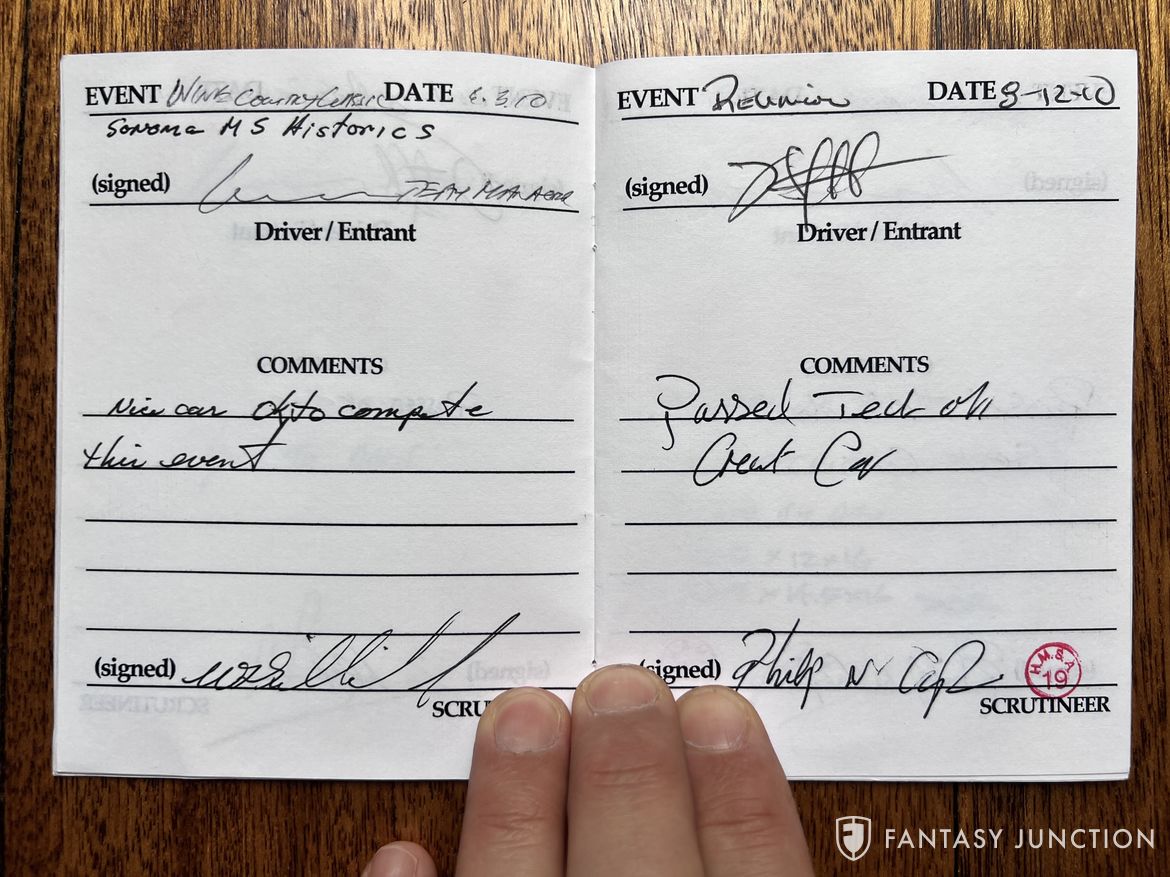 EVENT Wine Country Classic DATE 6.3.10
Sonoma MS Historics
(signed) TEAM MANAGER
Driver / Entrant
COMMENTS
Nice car ok to compete
this event
(signed)
SCRU
EVENT Reunion DATE 8-12-10
(signed)
Driver / Entrant
COMMENTS
Passed Tech ok
Great Car
(signed) Philip N
H.M.S.A.
19
SCRUTINEER
FANTASY JUNCTION